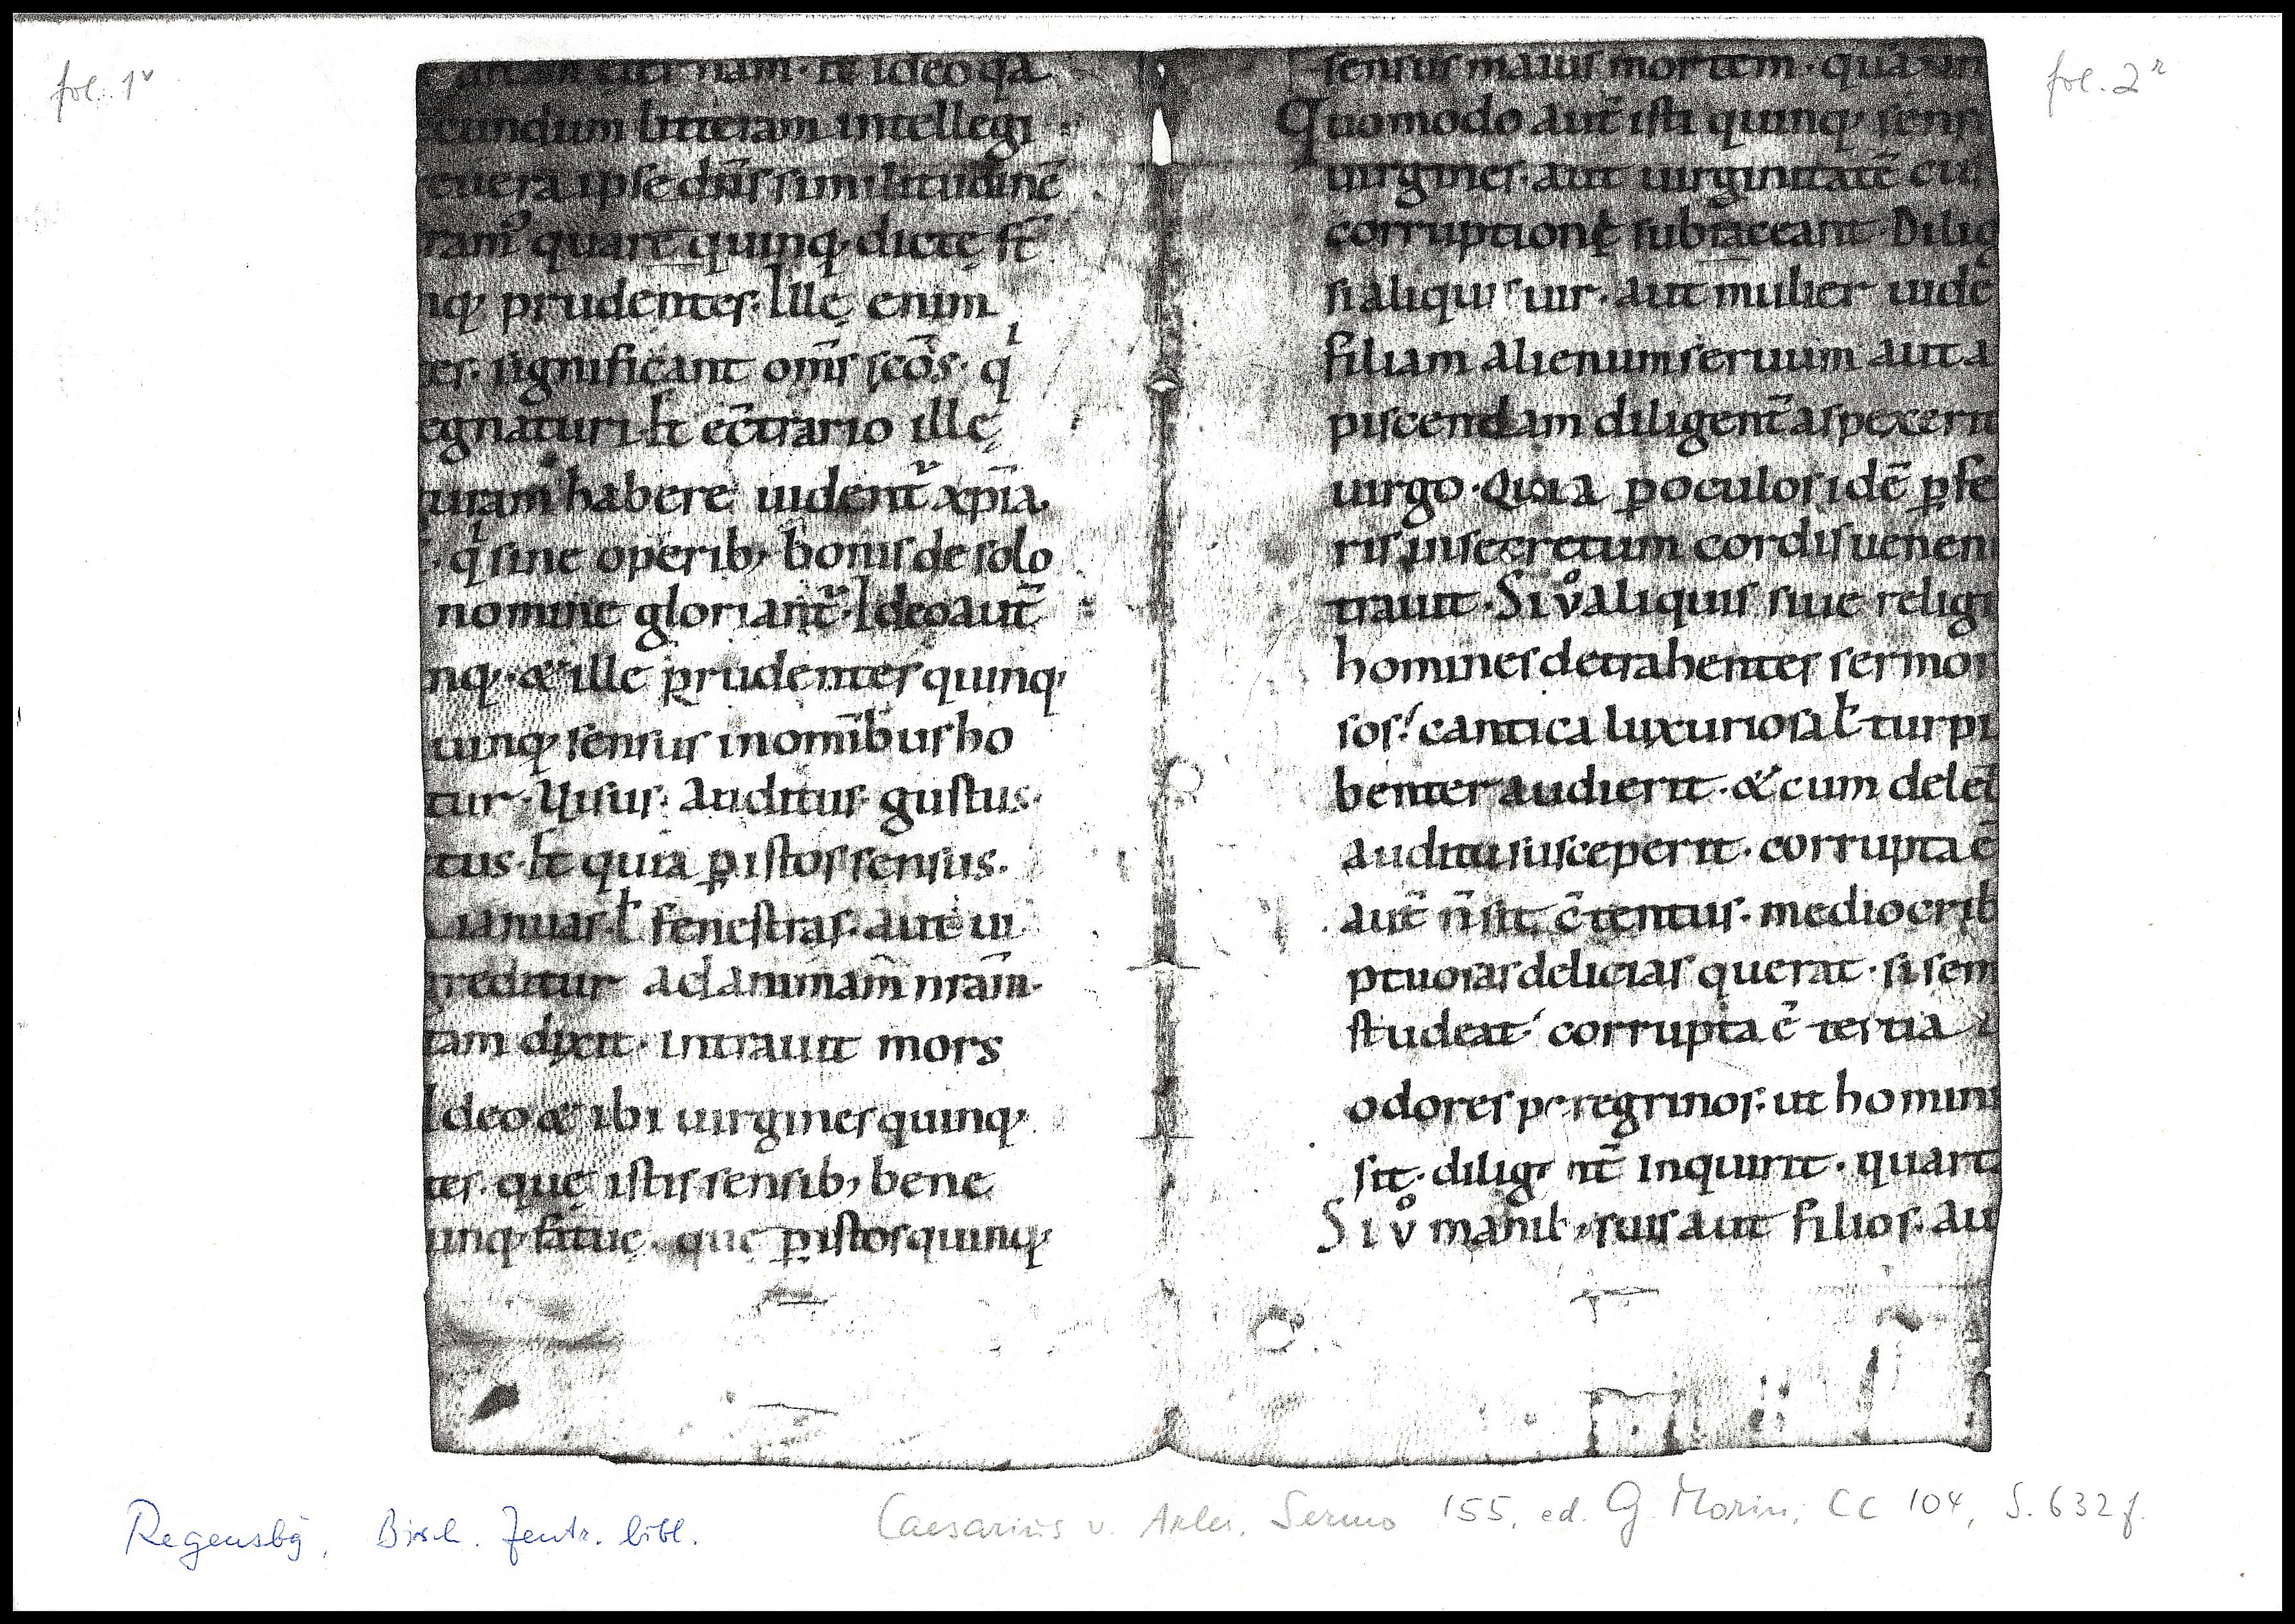 fol. 1v
nam. & ideo qa
cundum litteram intellegi
euera ipse dn̄s similitudinē
quart quinq; dictę st̄
nq; prudentes. Illę enim
significant om̄s sc̄os. qi
egnaturi. ht̄ ec̄trario illę
habere uident̄ xp̄ia
qi sine operib; bonis de solo
nomine gloriant̄. Ideo aut̄
nq;. & illę prudentes quinq;
uinq; sensus inom̄ibus ho
tur. Uisus. Auditus. gustus.
tus. st̄ quia ꝑ istos sensus.
ianuas. ł fenestras. aut ui
greditur ad animam nr̄am.
tam dixit. intrauit mors
Ideo & ibi uirgines quinq;
tes. quę istis sensib; bene
inq; fatuę. quę ꝑ istos quinq;
fol. 2r
sensus maius mortem. quā
Quomodo aut̄ isti quinq; sens
uirgines. aut uirginitatē cu
corruptionę subiaceant. Dilig
si aliquis uir. aut mulier uide
filiam alienum seruum aut a
piscendam diligent̄ aspexerit
uirgo. Quia ꝑ oculos idē ꝑfe
ris in secretum cordis uenen
trauit. Si v̊ aliquis siue religi
homines detrahentes sermon
sos. cantica luxuriosa ł turpi
benter audierit. & cum delet
auditu susceperit. corrupta ē
aut̄ n̄ sit c̄tentus. mediocrib
ptuosas delicias querat. si sem
studeat. corrupta ē tertia
odores peregrinos. ut homin
sit. dilig nt̄ inquirit. quart
Si v̊ manib; suis aut filios. au
Regensbg, Bisch. Zentr. bibl.
Caesarius v. Arles, Sermo 155, ed. G. Morin, CC 104, S. 632 f.